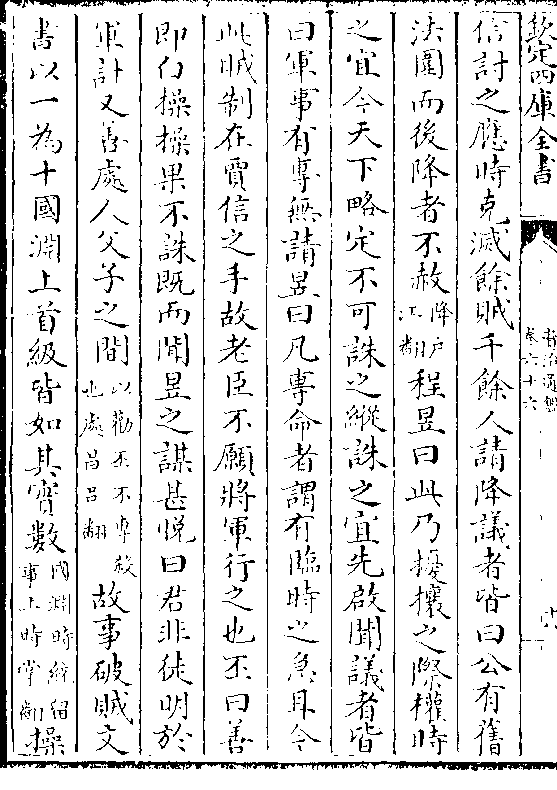 欽定四庫全書
資治通鑑
卷六十六
信討之應時克滅餘賊千餘人請降議者皆曰公有舊
法圍而後降者不赦降户江翻程昱曰此乃擾攘之際權時
之宜今天下略定不可誅之縱誅之宜先啟聞議者皆
曰軍事有專無請昱曰凡專命者謂有臨時之急耳今
此賊制在賈信之手故老臣不願將軍行之也丕曰善
即白操操果不誅既而聞昱之謀甚悅曰君非徒明於
軍計又善處人父子之間以勸丕不專殺也處昌吕翻故事破賊文
書以一為十國淵上首級皆如其實數國淵時統留事上時掌翻操